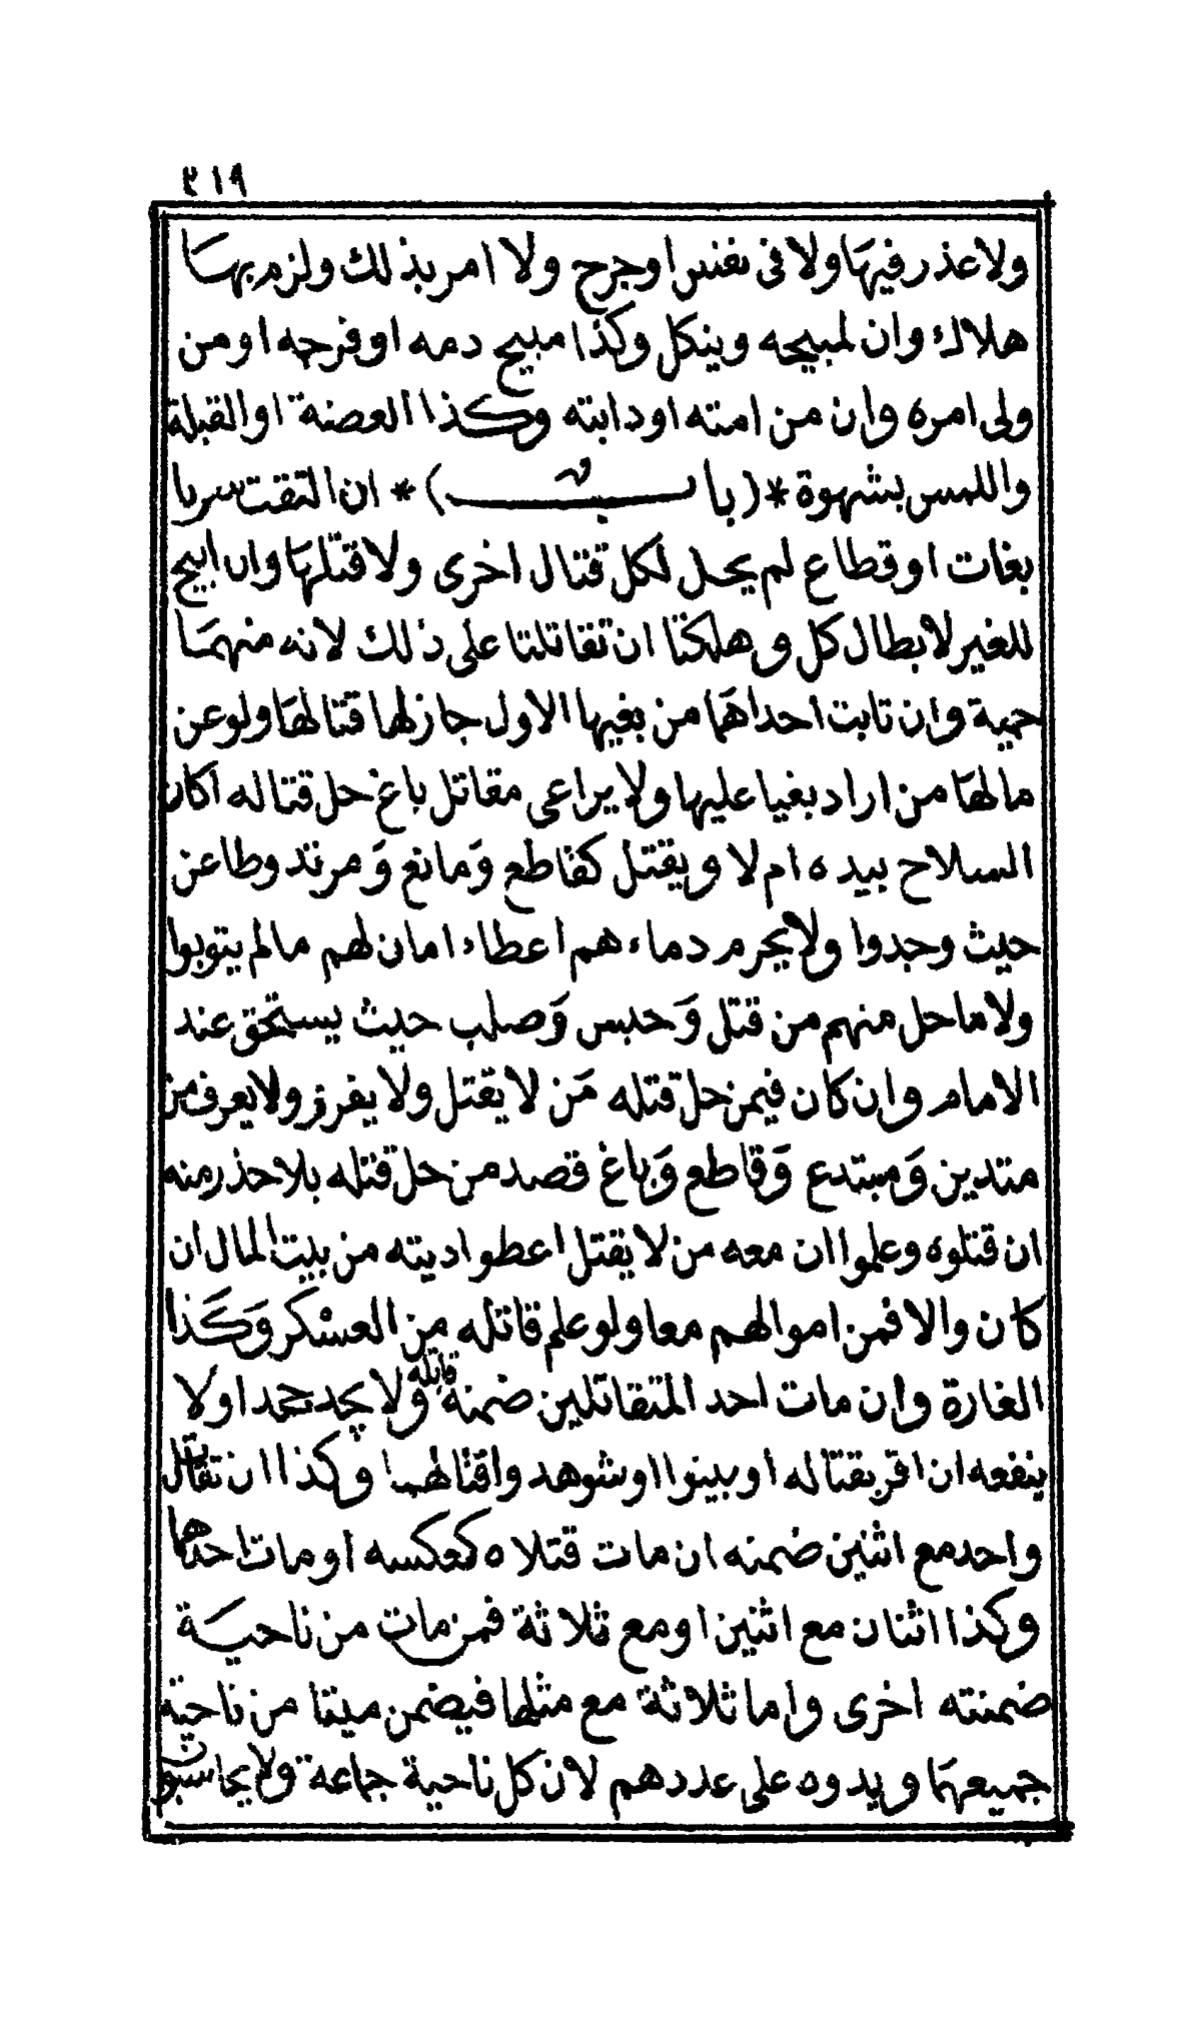 ٣١٩
ولا عذر فيها ولا فى نفس او جرح ولا امر بذلك ولزم بها
هلاك وان لمبيحه وينكل وكذا مبيح دمه او فرجه او من
ولى امره وان من امته او دابته وكذا العضة او القبلة
واللمس بشهوة *( باب )* ان التقت سريا
بغات او قطاع لم يحل لكل قتال اخرى ولا قتلها وان ابيح
للغير لابطال كل وهلكتا ان تقاتلتا على ذلك لانه منهما
حمية وان تابت احداهما من بغيها الاول جاز لها قتالها ولو عن
مالها من اراد بغيا عليها ولا يراعى مقاتل باغ حل قتاله اكان
السلاح بيده ام لا ويقتل كقاطع وَمانع وَمرتد وطاعن
حيث وجدوا ولا يحرم دماءهم اعطاء امان لهم ما لم يتوبوا
ولا ما حل منهم من قتل وَحبس وَصلب حيث يستحق عند
الامام وان كان فيمن حل قتله مَن لا يقتل ولا يفرز ولا يعرف من
متدين وَمبتدع وَقاطع وَباغ قصد من حل قتله بلا حذر منه
ان قتلوه وعلموا ان معه من لا يقتل اعطوا ديته من بيت المال ان
كان والا فمن اموالهم معا ولو علم قاتله من العسكر وَكَذا
الغارة وان مات احد المتقاتلين ضمنه قاتله ولا يجد جحدا ولا
ينفعه ان اقر بقتاله او بينوا او شوهد واقتالهما وكذا ان تقاتل
واحد مع اثنين ضمنه ان مات قتلاه كعكسه او مات احدهما
وكذا اثنان مع اثنين او مع ثلاثة فمن مات من ناحية
ضمنته اخرى واما ثلاثة مع مثلها فيضمن ميتا من ناحية
جميعهما ويدوه على عددهم لان كل ناحية جماعة ولا يحاسبون